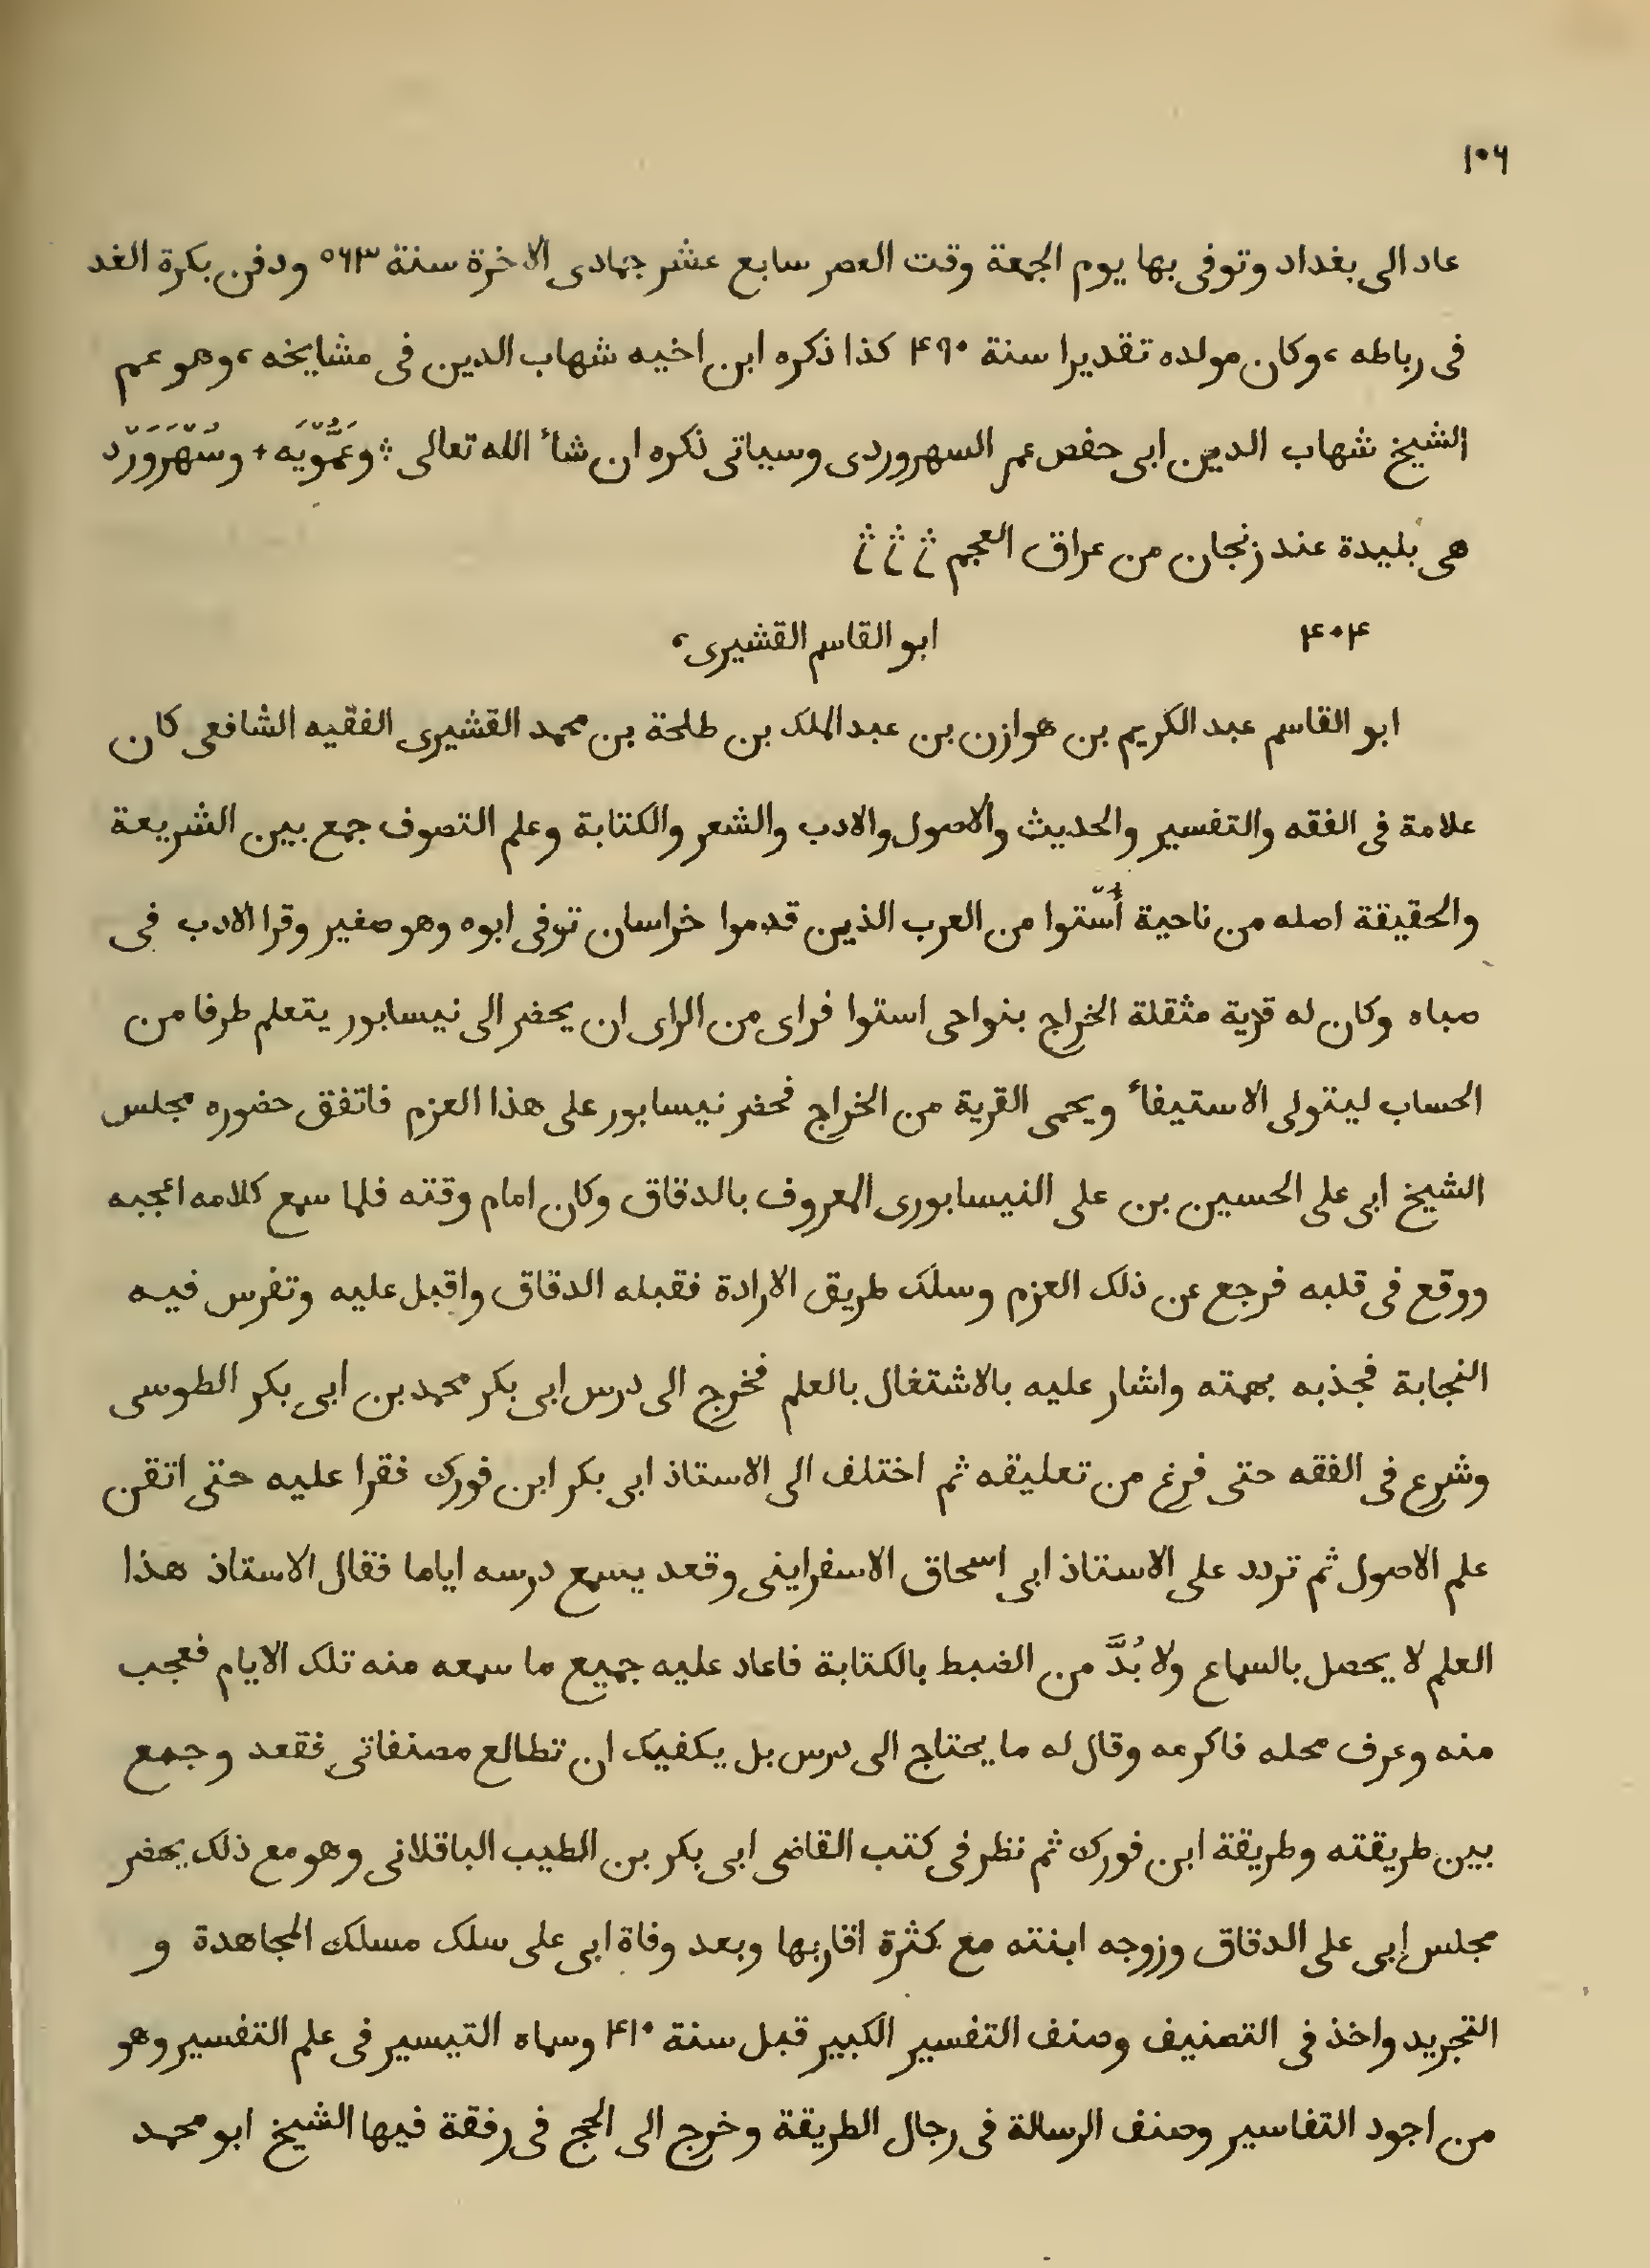 ١٠٦
عاد الى بغداد وتوفى بها يوم الجمعة وقت العصر سابع عشر جمادى الاخرة سنة ٥٦٣ ودفن بكرة الغد
فى رباطه ، وكان مولده تقديرا سنة ۴٩٠ كذا ذكره ابن اخيه شهاب الدين فى مشايخه ، وهو عم
الشيخ شهاب الدين ابى حفص عمر السهروردى وسياتى ذكره ان شاء الله تعالى ؛ وعَمُّوَيْه + وسُهْرَوَرْد
هى بليدة عند زنجان من عراق العجم
۴٠۴ ابو القاسم القشيرى ،
ابو القاسم عبد الكريم بن هوازن بن عبد الملك بن طلحة بن محمد القشيرى الفقيه الشافعى كان
علامة فى الفقه والتفسير والحديث والاصول والادب والشعر والكتابة وعلم التصوف جمع بين الشريعة
والحقيقة اصله من ناحية أُسْتوا من العرب الذين قدموا خراسان توفى ابوه وهو صغير وقرا الادب فى
صباه وكان له قرية مثقلة الخراج بنواحى استوا فراى من الراى ان يحضر الى نيسابور يتعلم طرفا من
الحساب ليتولى الاستيفاء ويحمى القرية من الخراج فحضر نيسابور على هذا العزم فاتفق حضوره مجلس
الشيخ ابى على الحسين بن على النيسابورى المعروف بالدقاق وكان امام وقته فلما سمع كلامه اعجبه
ووقع فى قلبه فرجع عن ذلك العزم وسلك طريق الارادة فقبله الدقاق واقبل عليه وتفرس فيه
النجابة فجذبه بهمته واشار عليه بالاشتغال بالعلم فخرج الى درس ابى بكر محمد بن ابى بكر الطوسى
وشرع فى الفقه حتى فرغ من تعليقه ثم اختلف الى الاستاذ ابى بكر ابن فورك فقرا عليه حتى اتقن
علم الاصول ثم تردد على الاستاذ ابى اسحاق الاسفراينى وقعد يسمع درسه اياما فقال الاستاذ هذا
العلم لا يحصل بالسماع ولا بُدَّ من الضبط بالكتابة فاعاد عليه جميع ما سمعه منه تلك الايام فعجب
منه وعرف محله فاكرمه وقال له ما يحتاج الى درس بل يكفيك ان تطالع مصنفاتى فقعد وجمع
بين طريقته وطريقة ابن فورك ثم نظر فى كتب القاضى ابى بكر بن الطيب الباقلانى وهو مع ذلك يحضر
مجلس ابى على الدقاق وزوجه ابنته مع كثرة اقاربها وبعد وفاة ابى على سلك مسلك المجاهدة و
التجريد واخذ فى التصنيف وصنف التفسير الكبير قبل سنة ۴١٠ وسماه التيسير فى علم التفسير وهو
من اجود التفاسير وصنف الرسالة فى رجال الطريقة وخرج الى الحج فى رفقة فيها الشيخ ابو محمد